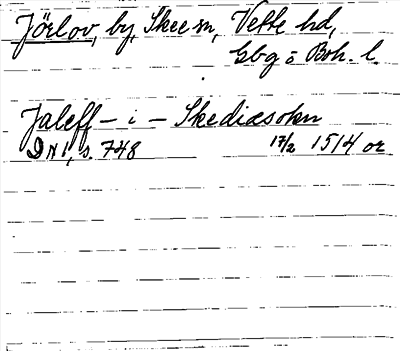 Jörlov, by, Skee sn, Vette hd,
Gbg o Boh. l.
Jaleff - i - Skediæsokn
DN 1, s. 748 17/2 1514 or